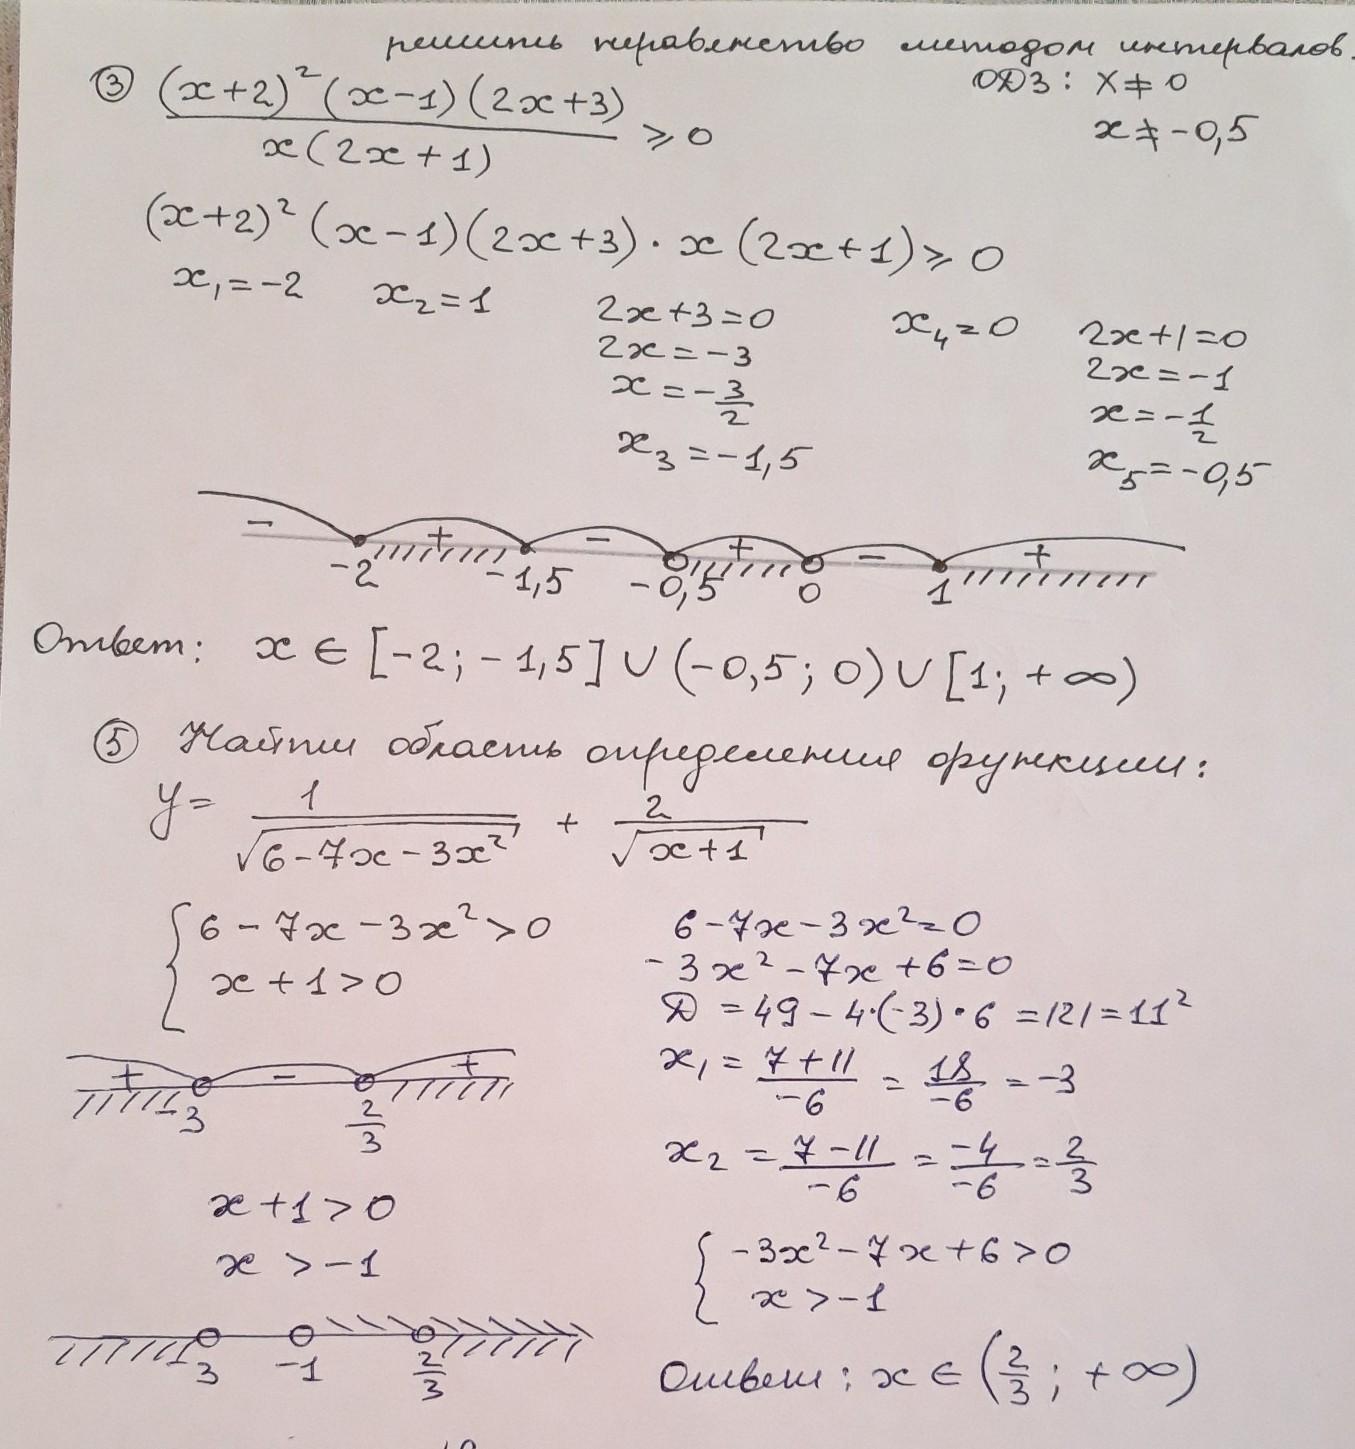 решить неравенство методом интервалов.
③ (x+2)²(x-1)(2x+3) / x(2x+1) ⩾ 0
ОДЗ: x≠0
x≠-0,5
(x+2)²(x-1)(2x+3)·x(2x+1)⩾0
x₁=-2 x₂=1 2x+3=0 x₄=0 2x+1=0
2x=-3 2x=-1
x=-3/2 x=-1/2
x₃=-1,5 x₅=-0,5
- + - + - +
-2 -1,5 -0,5 0 1
Ответ: x∈[-2;-1,5]∪(-0,5;0)∪[1;+∞)
⑤ Найти область определения функции:
y= 1/√(6-7x-3x²) + 2/√(x+1)
{6-7x-3x²>0
x+1>0
6-7x-3x²=0
-3x²-7x+6=0
Д=49-4·(-3)·6=121=11²
x₁=(7+11)/-6=18/-6=-3
x₂=(7-11)/-6=-4/-6=2/3
+ - +
-3 2/3
x+1>0
x>-1
{-3x²-7x+6>0
x>-1
-3 -1 2/3
Ответ: x∈(2/3;+∞)